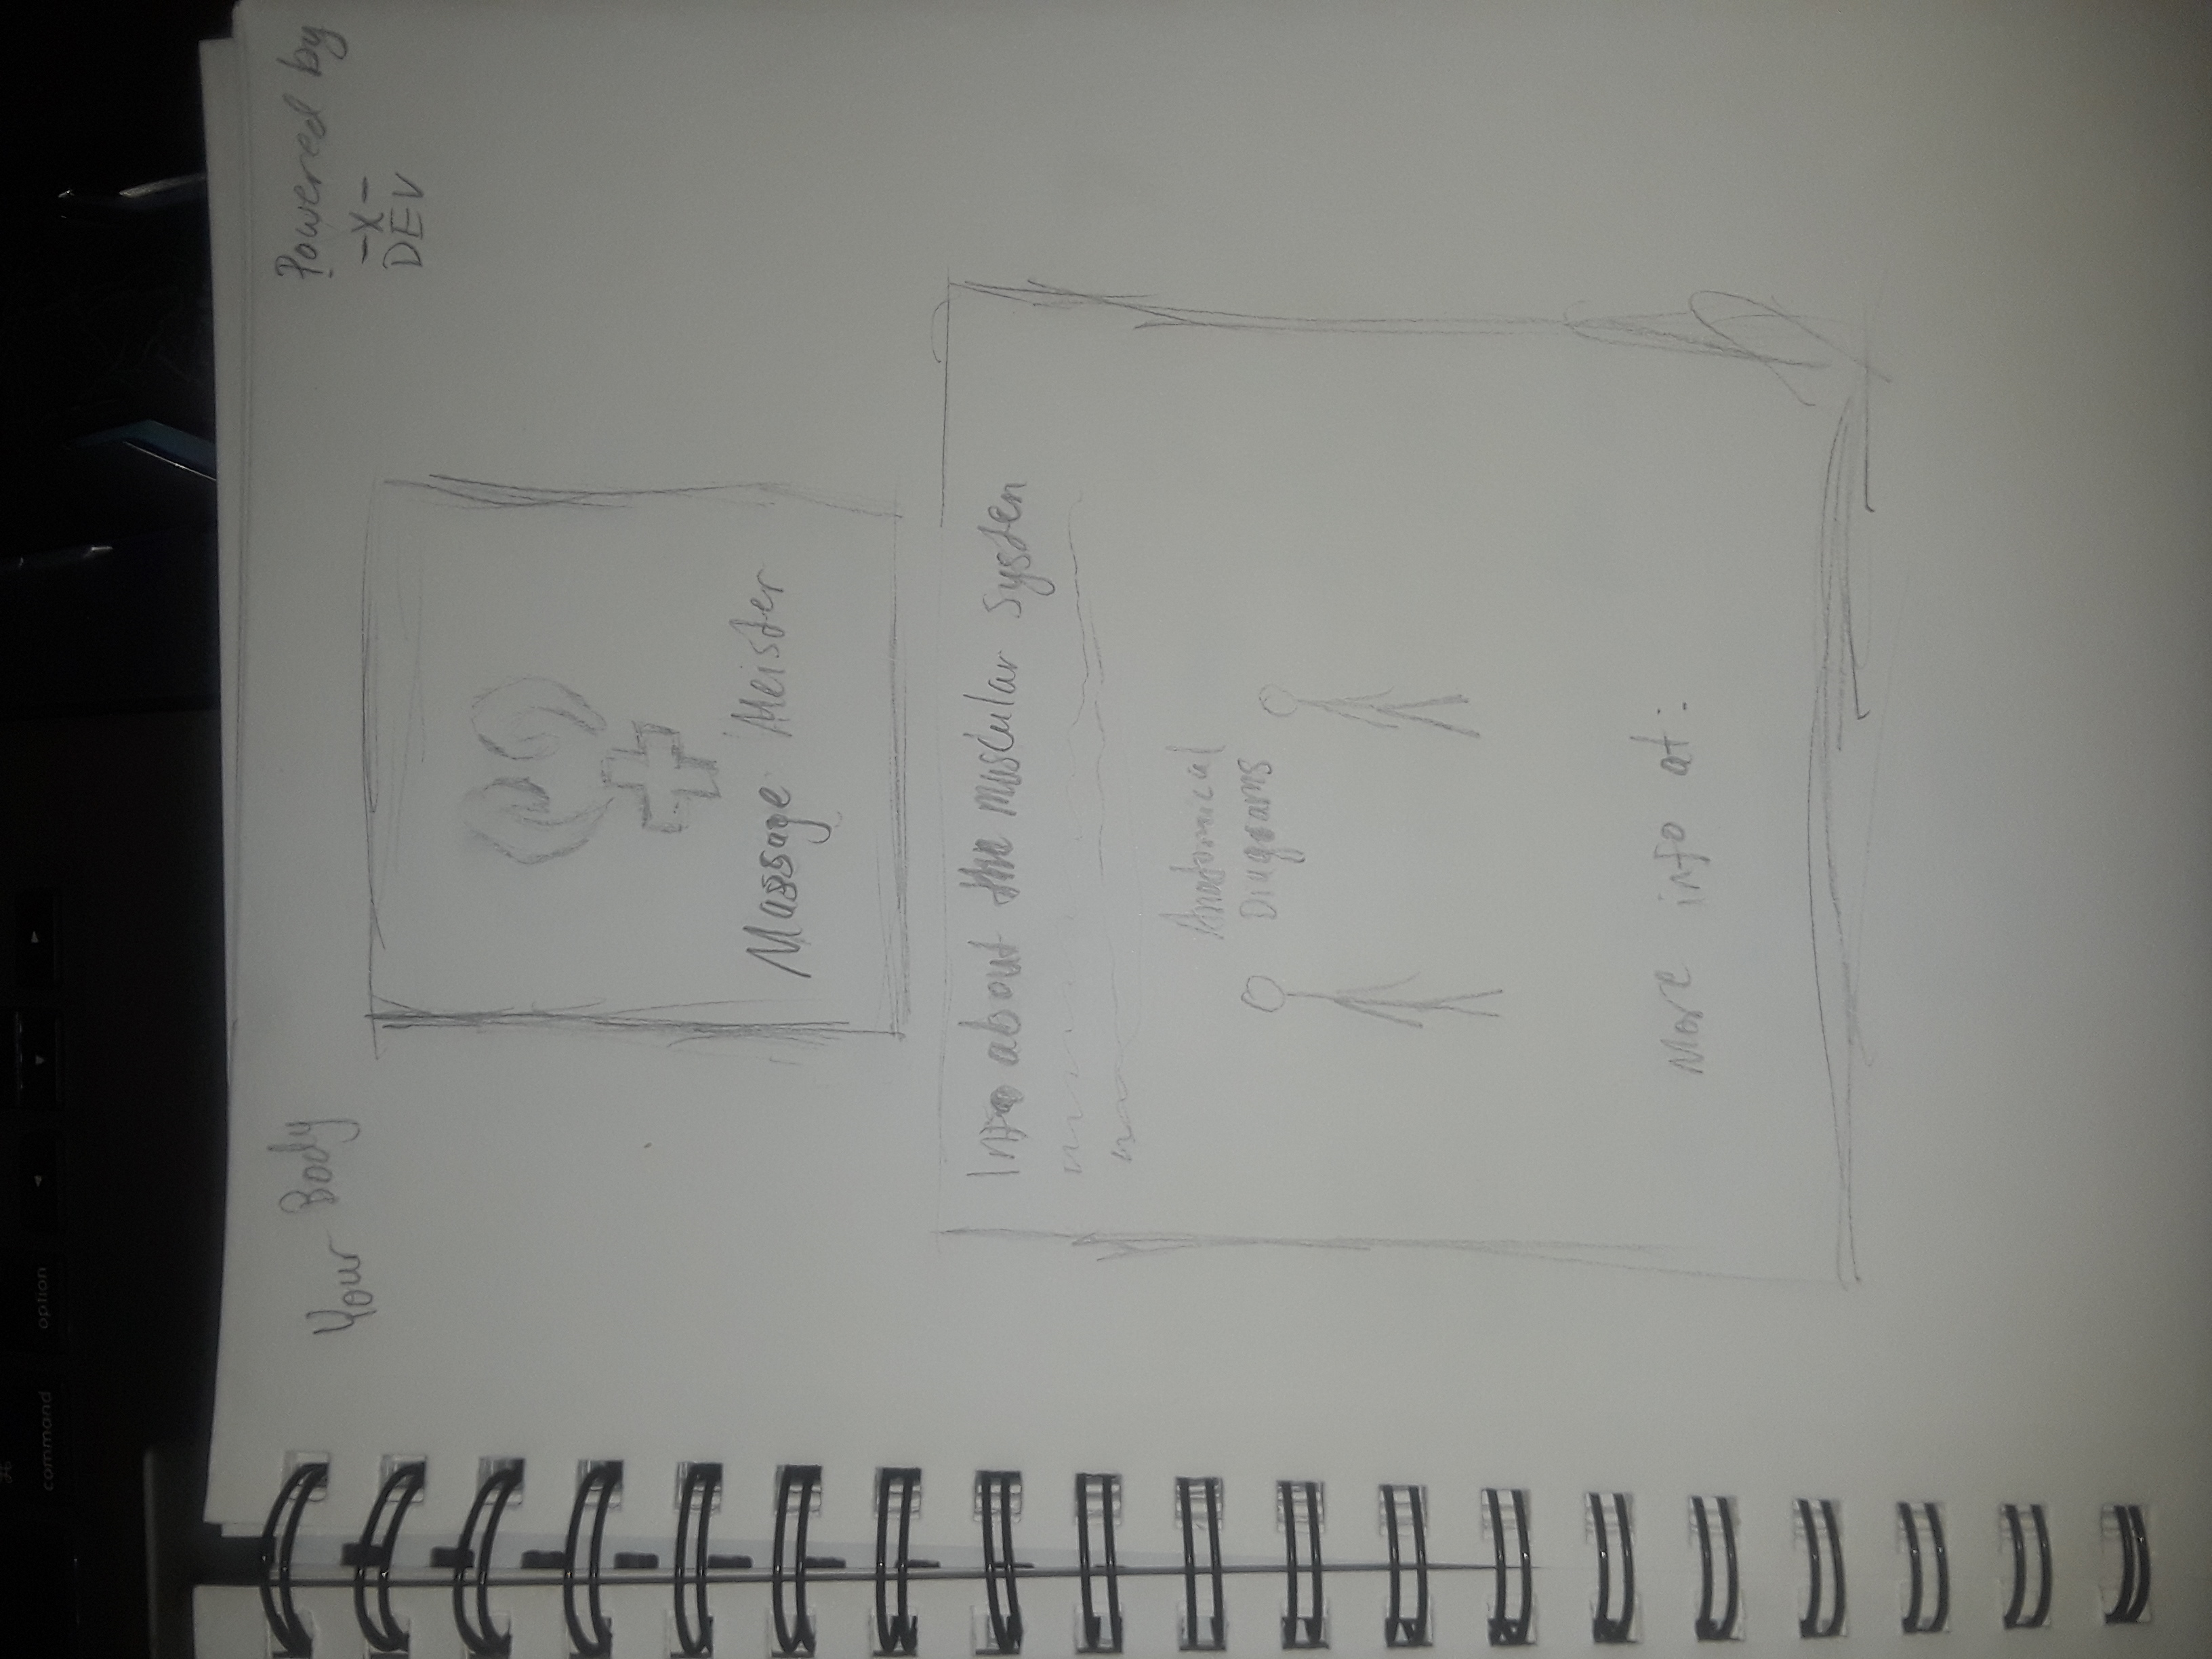 ⌘
command
option
◄
▼
►
Your Body
Powered by
-X-
DEV
Massage Meister
Info about the muscular systen
Anatomical
Diagrams
More info at: